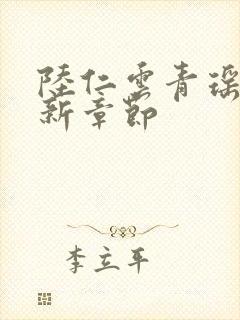 陸仁雲青瑶
新章節
李立平